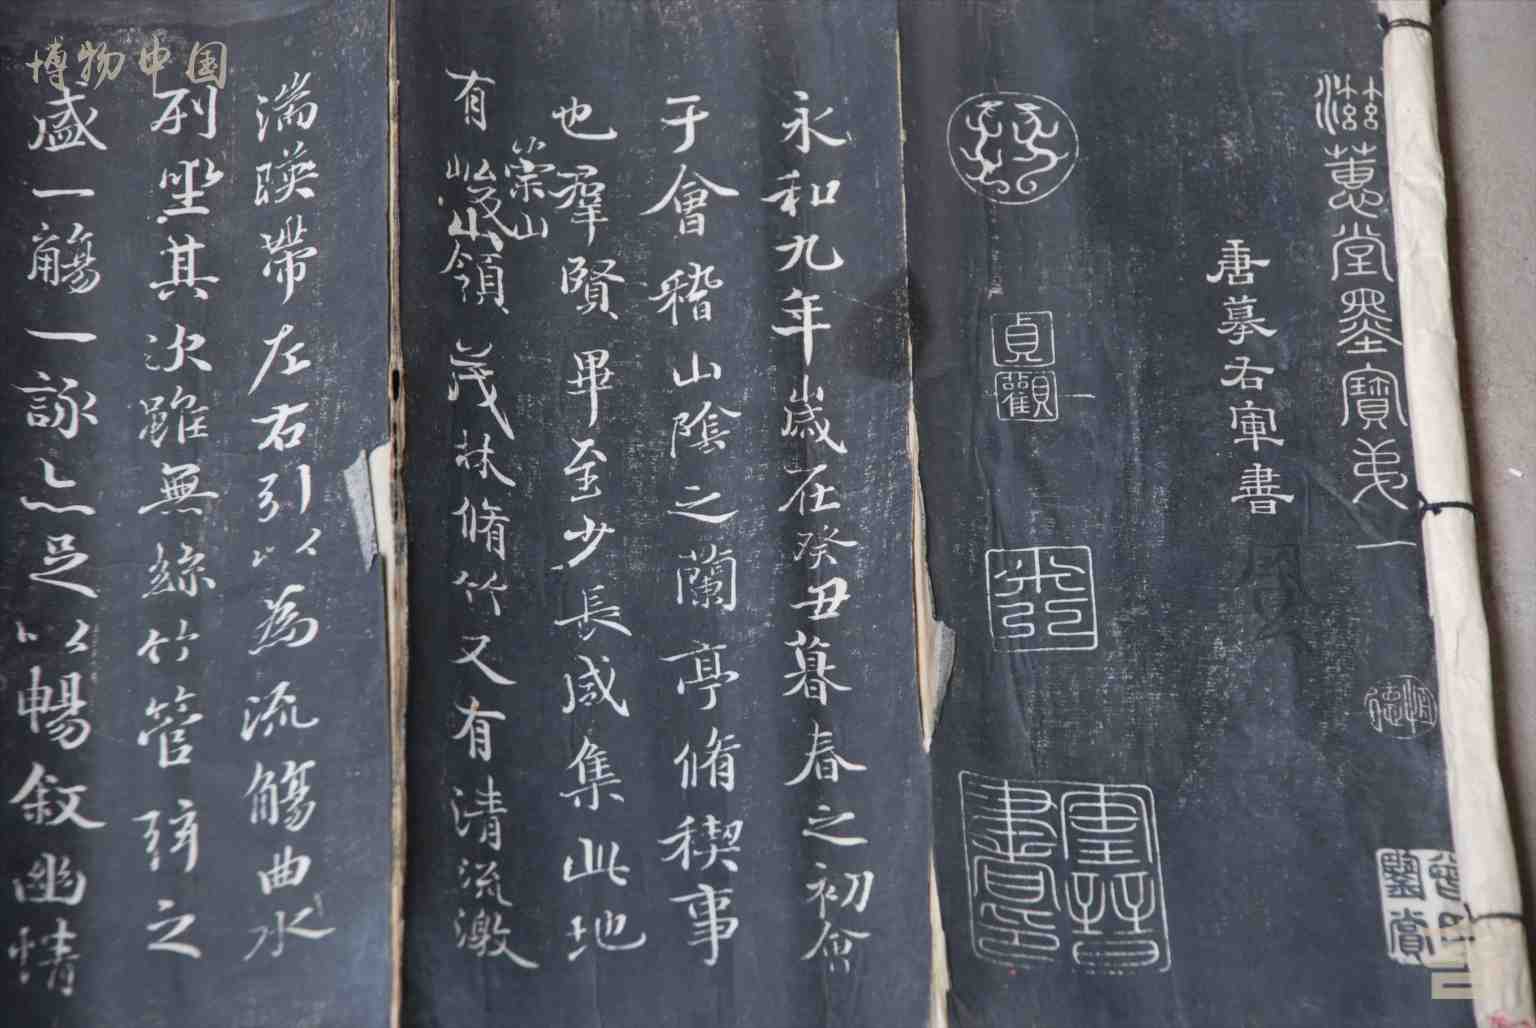 滋蕙堂墨寶弟一
唐摹右軍書
貞觀
永和九年歲在癸丑暮春之初會
于會稽山陰之蘭亭脩稧事
也羣賢畢至少長咸集此地
有崇山峻領茂林脩竹又有清流激
湍暎帶左右引以為流觴曲水
列坐其次雖無絲竹管弦之
盛一觴一詠亦足以暢敘幽情
博物中国